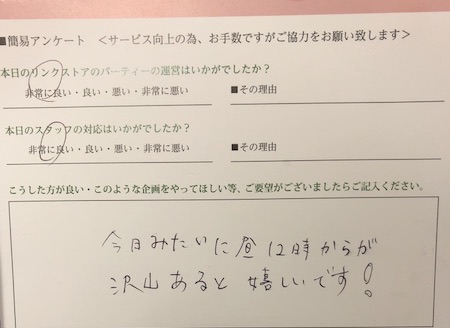 ■簡易アンケート <サービス向上の為、お手数ですがご協力をお願い致します>
本日のリンクストアのパーティーの運営はいかがでしたか?
非常に良い・良い・悪い・非常に悪い ■その理由
本日のスタッフの対応はいかがでしたか?
非常に良い・良い・悪い・非常に悪い ■その理由
こうした方が良い・このような企画をやってほしい等、ご要望がございましたらご記入ください。
今日みたいに昼12時からが
沢山あると嬉しいです!